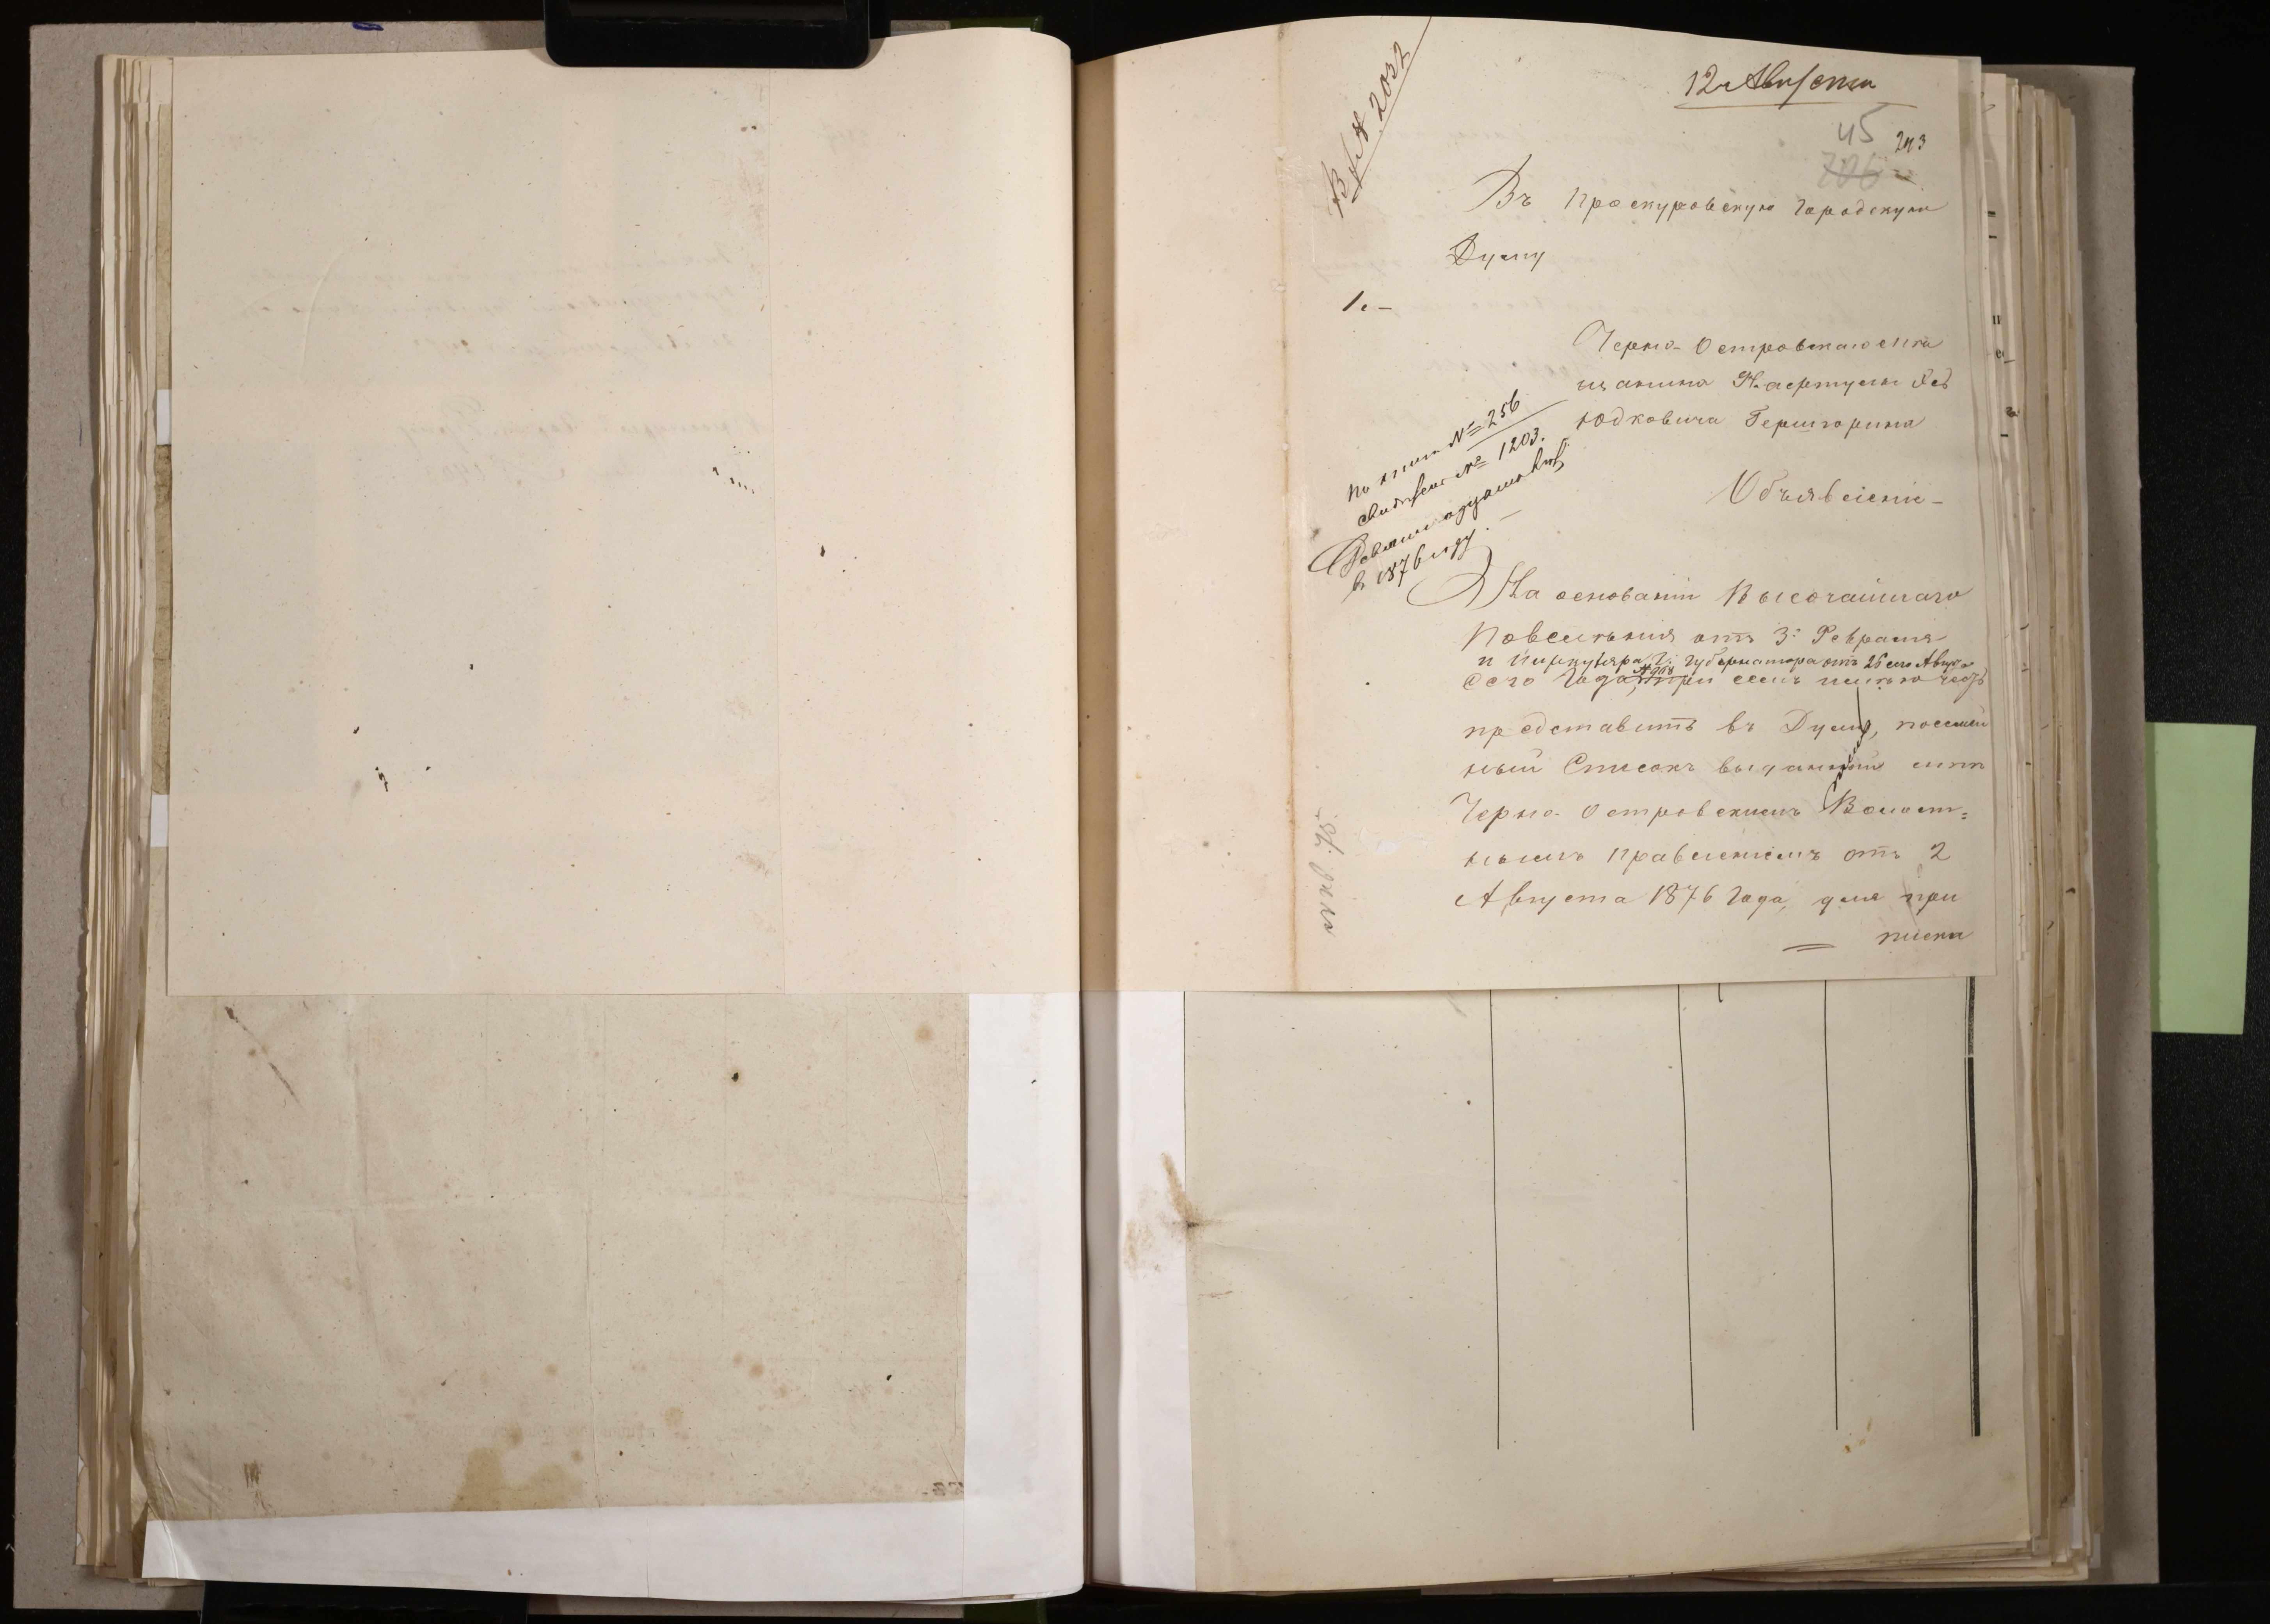 12 Августа
45
243
706
Вх № 2032
Въ Проскуровскую Городскую
Думу
1.-
Черно-Островскаго мѣ
щанина
Юдковича Герингорина
Объявленіе-
По книгѣ № 256
№ 1203.
в 1876 году.
На основаніи Высочайшаго
Повелѣнія отъ 3: Февраля
и Циркуляра Г. Губернатора отъ 25
№ 968
Сего Года, при семъ имѣю честь
представить въ Думу, посемей
ный Списокъ выданный мнѣ
Черно-Островскимъ Волост=
нымъ Правленіемъ отъ 2
Августа 1876 Года, для при
писки